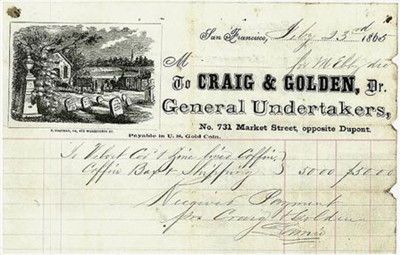 San Francisco, July 23rd 1865
M
To CRAIG & GOLDEN, Dr.
General Undertakers,
No. 731 Market Street, opposite Dupont.
Payable in U. S. Gold Coin.
To Velvet Cov'd & fine lined Coffin
Coffin Box & Shipping 50.00 $50.00
Received Payment
for Craig & Golden